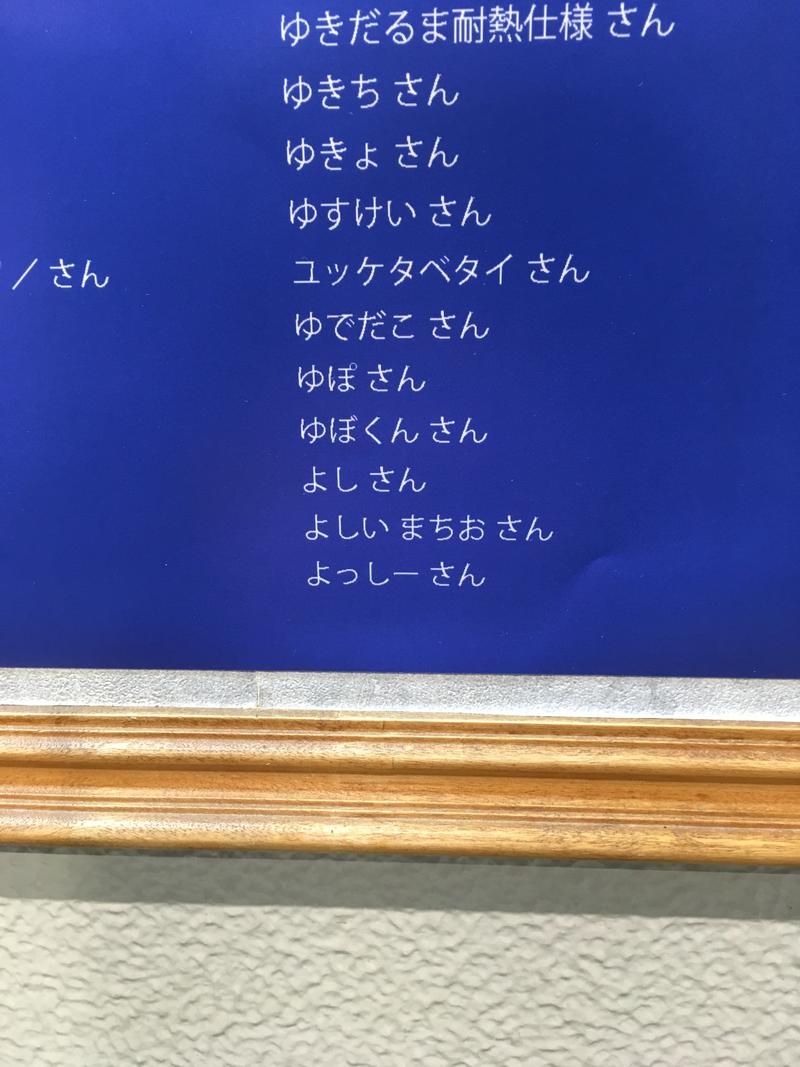 ゆきだるま耐熱仕様 さん
ゆきち さん
ゆきょ さん
ゆすけい さん
ユッケタベタイ さん
ゆでだこ さん
ゆぽ さん
ゆぼくん さん
よし さん
よしい まちお さん
よっしー さん
さん